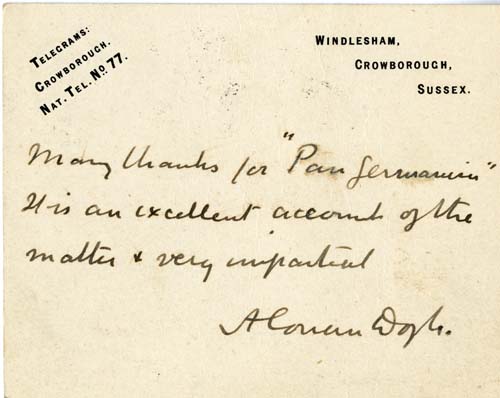 TELEGRAMS:
CROWBOROUGH.
NAT. TEL. NO. 77.
WINDLESHAM,
CROWBOROUGH,
SUSSEX.
Many thanks for "Pan Germanism"
It is an excellent account of the
matter & very impartial
A Conan Doyle.